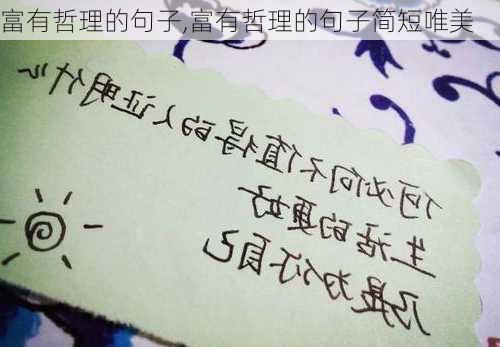 富有哲理的句子,富有哲理的句子简短唯美
何必向不值得的人证明什么~
生活的更好
乃是为你自己